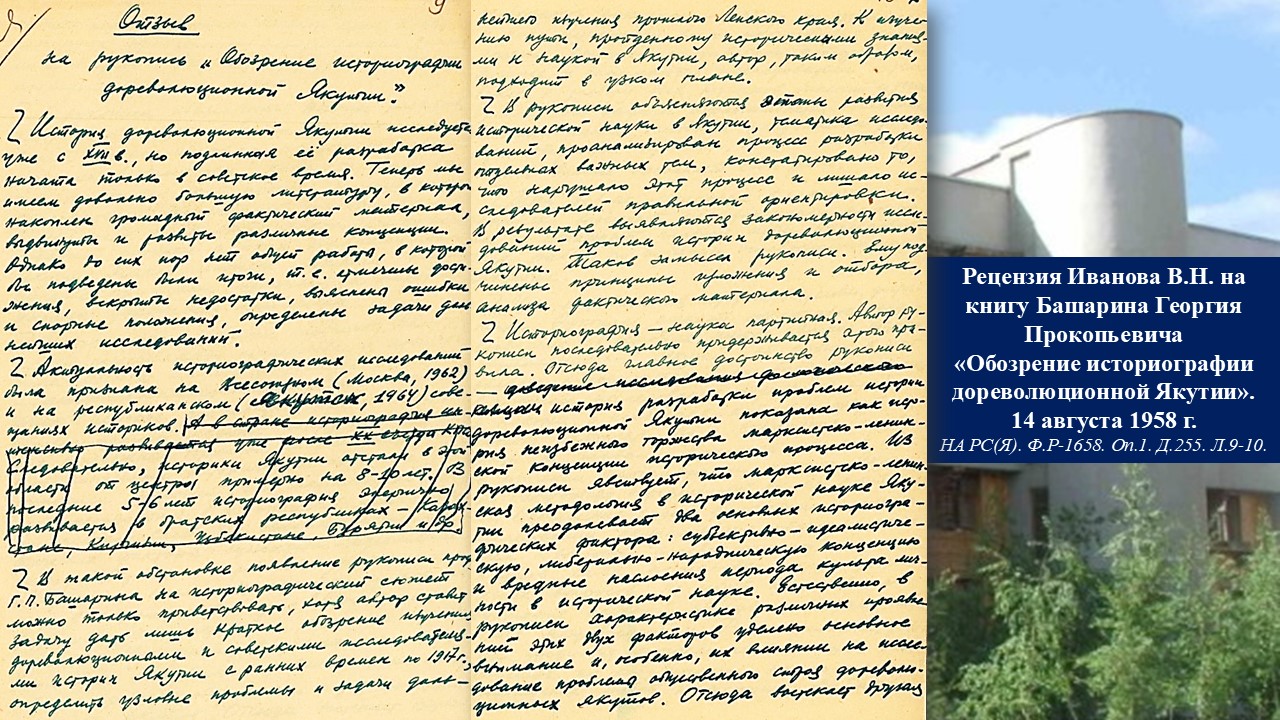 Отзыв
на рукопись „Обозрение историографии
дореволюционной Якутии."
История дореволюционной Якутии исследуется
уже с XVIII в., но подлинная её разработка
начата только в советское время. Теперь мы
имеем довольно большую литературу, в которой
накоплен громадный фактический материал,
выдвинуты и развиты различные концепции.
Однако до сих пор нет общей работы, в которой
бы подведены были итоги, т.е. отмечены дости-
жения, вскрыты недостатки, выяснены ошибки
и спорные положения, определены задачи даль-
нейших исследований.
Актуальность историографических исследований
была признана на Всесоюзном (Москва, 1962)
и на республиканском (Якутск, 1964) сове-
щаниях историков. А в стране историография
развивается уже после XX съезда
Следовательно, историки Якутии отстали в этой
области от центра, примерно на 8-10 лет. В
последние 5-6 лет историография энергично
развивается в братских республиках – Казах-
стане, Киргизии, Узбекистане, Бурятии и др.
В такой обстановке появление рукописи проф.
Г.П. Башарина на историографический сюжет
можно только приветствовать, хотя автор ставит
задачу дать лишь краткое обозрение изучения
дореволюционными и советскими исследователя-
ми истории Якутии с ранних времен по 1917 г.,
определить узловые проблемы и задачи даль-
нейшего изучения прошлого Ленского края. К изуче-
нию пути, пройденному историческими знания-
ми и наукой в Якутии, автор, таким образом,
подходит в узком плане.
В рукописи объясняются этапы развития
исторической науки в Якутии, тематика исследо-
ваний, проанализирован процесс разработки
отдельных важных тем, констатировано то,
что нарушало этот процесс и лишало ис-
следователей правильной ориентировки.
В результате выявляются закономерности иссле-
дований проблем истории дореволюционной
Якутии. Таков замысел рукописи. Ему под-
чинены принципы изложения и отбора,
анализа фактического материала.
Историография – наука партийная. Автор ру-
кописи последовательно придерживается этого пра-
вила. Отсюда главное достоинство рукописи
– история разработки проблем истории
дореволюционной Якутии показана как исто-
рия неизбежного торжества марксистско-ленин-
ской концепции исторического процесса. Из
рукописи явствует, что марксистско-ленин-
ская методология в исторической науке Яку-
тии преодолевает два основных историогра-
фических фактора: субъективно-идеалистиче-
скую, либерально-народническую концепцию
и вредные наслоения периода культа лич-
ности в исторической науке. Естественно, в
рукописи характеристике различных проявле-
ний этих двух факторов уделено основное
внимание и, особенно, их влиянии на иссле-
дование проблемы общественного строя дореволю-
ционных якутов. Отсюда вытекает другая
Рецензия Иванова В.Н. на
книгу Башарина Георгия
Прокопьевича
«Обозрение историографии
дореволюционной Якутии».
14 августа 1958 г.
НА РС(Я). Ф.Р-1658. Оп.1. Д.255. Л.9-10.